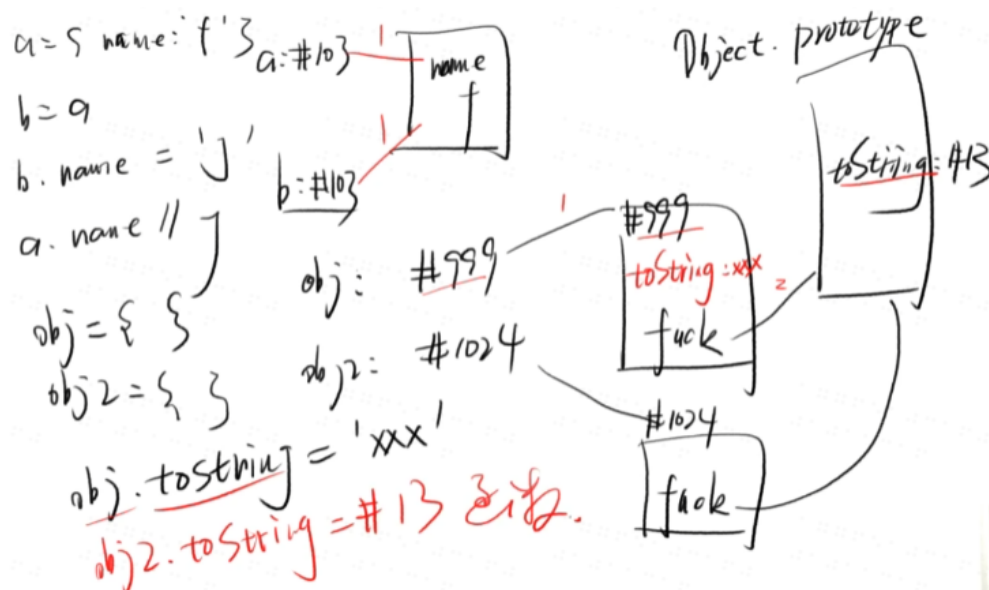 a = { name: 'f' }
b = a
b. name = 'j'
a. name // j
obj = { }
obj2 = { }
obj. toString = 'xxx'
obj2. toString = #13 函数.
a: #103
name
f
b: #103
1
1
obj: #999
obj2: #1024
1
#999
toString: xxx
fuck
2
#1024
fuck
Object. prototype
toString: #13